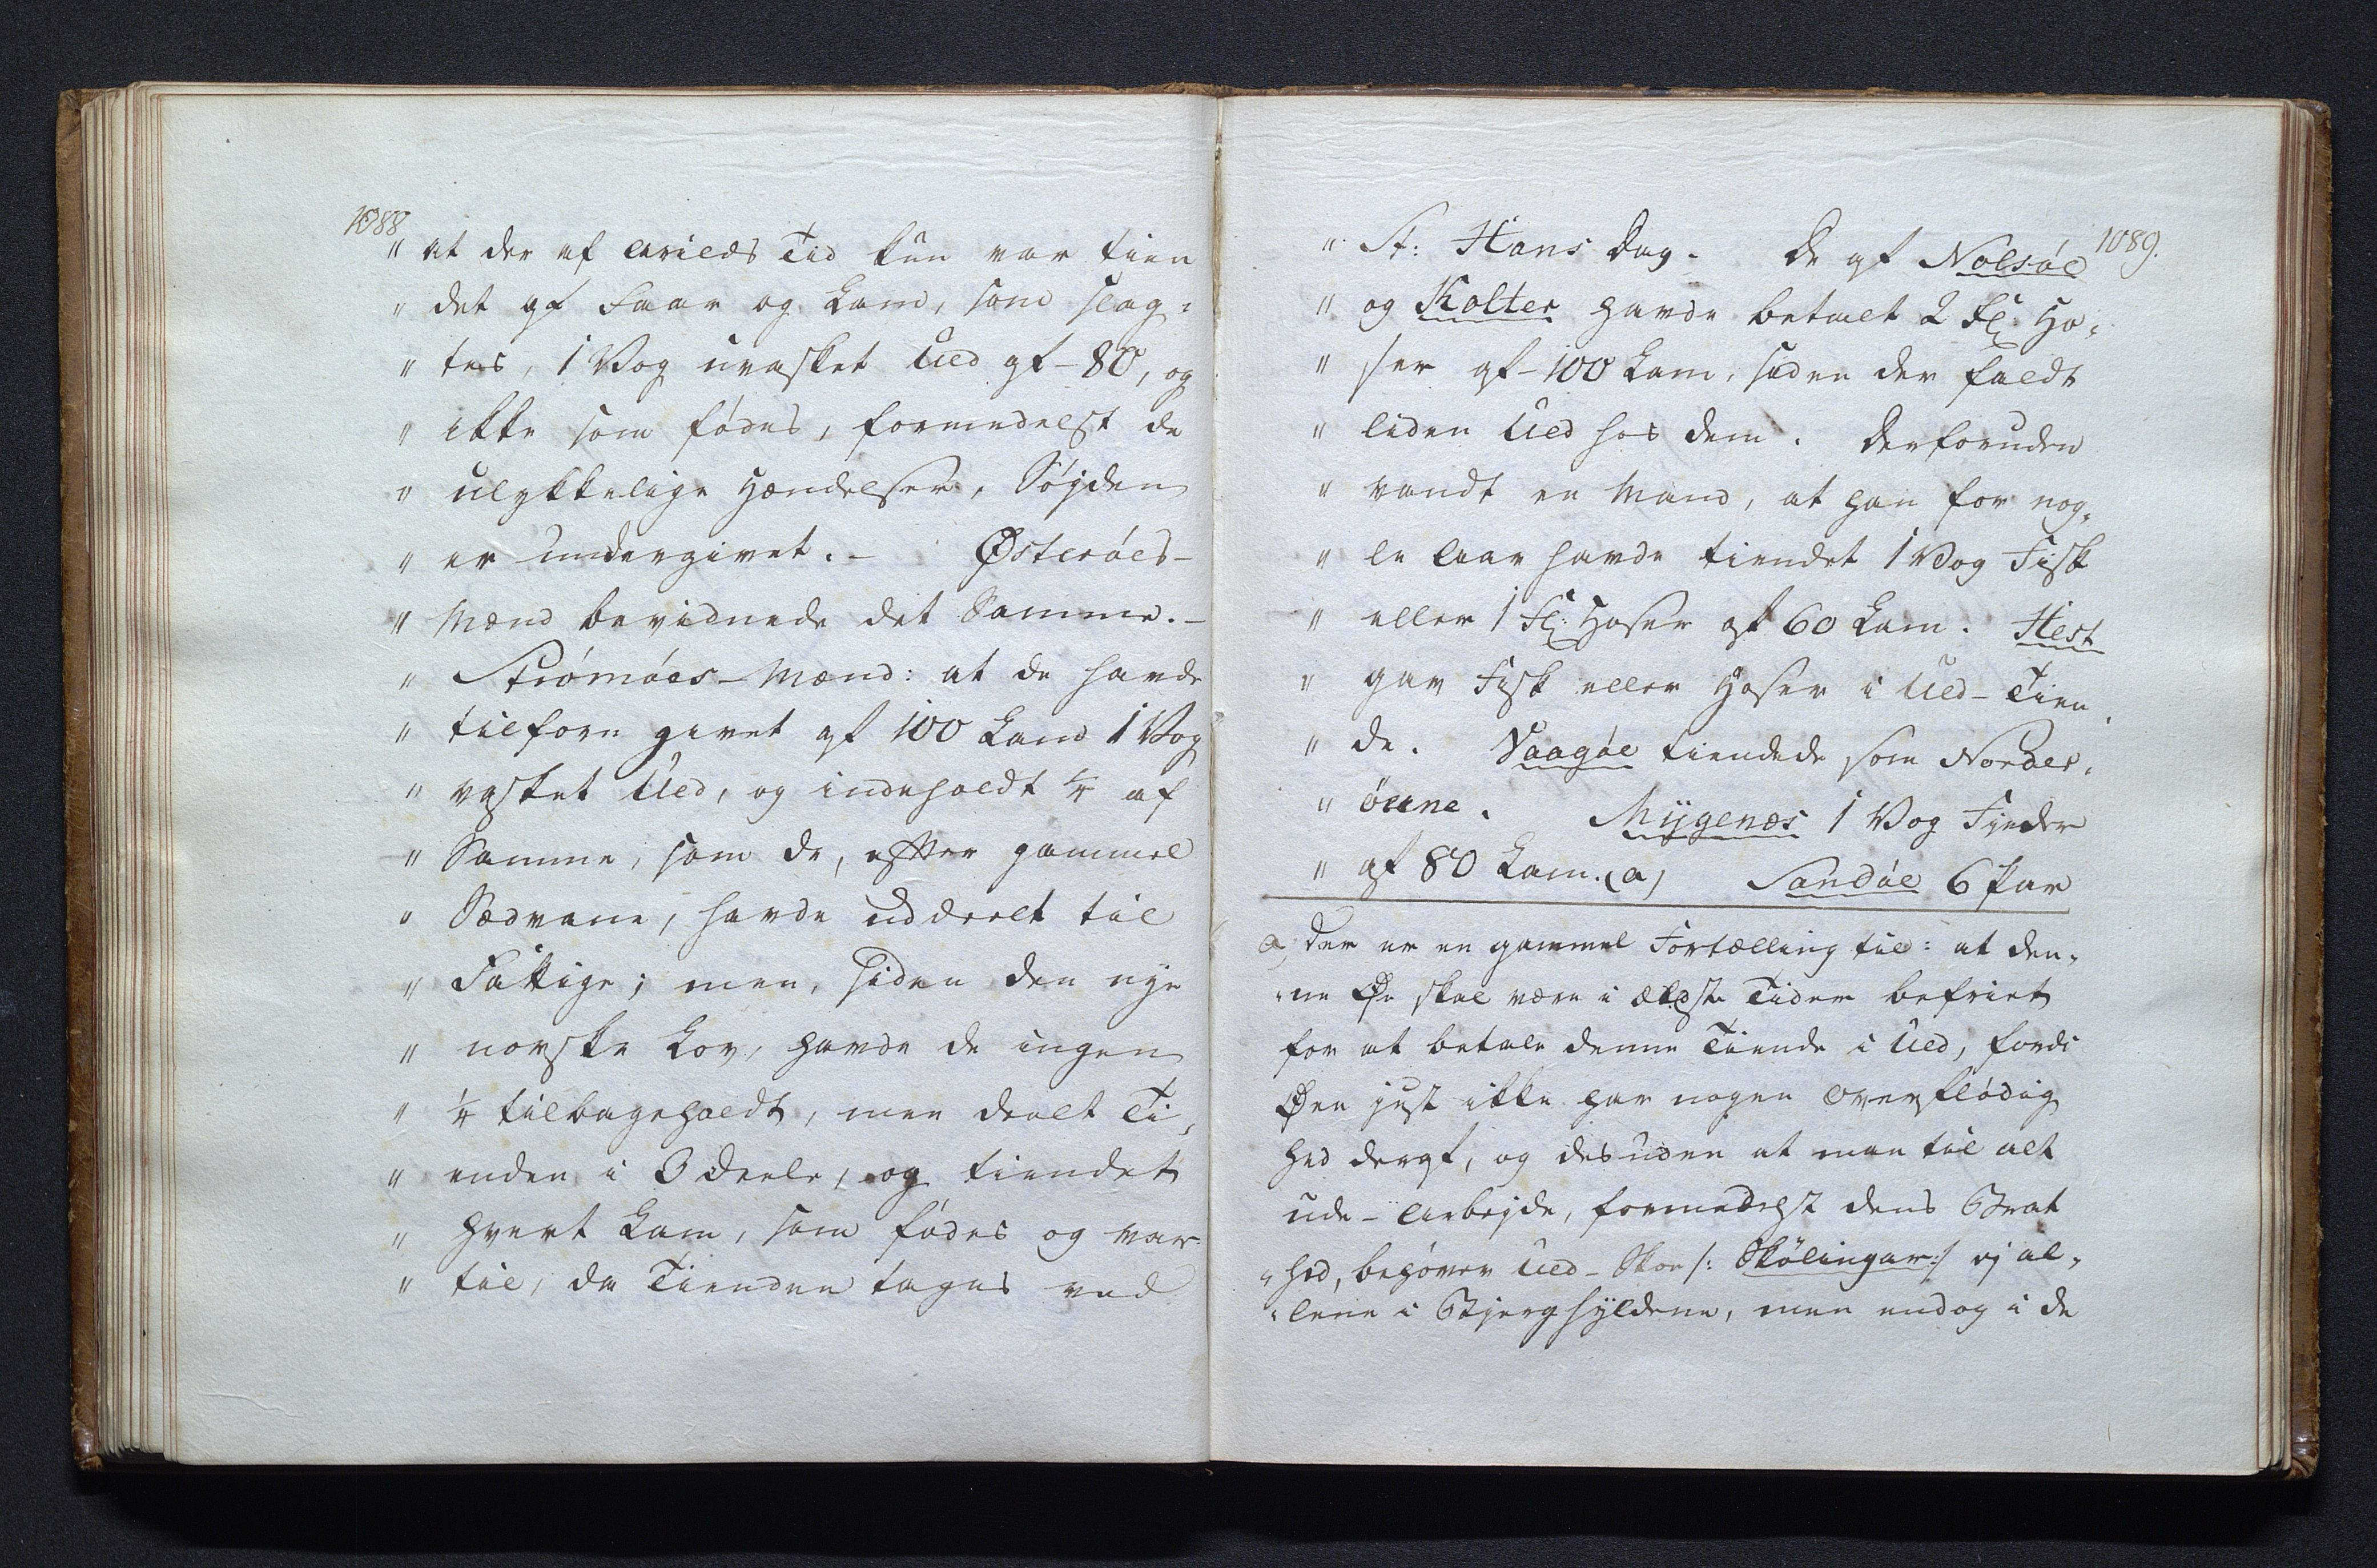 1088
" at der af Arilds Tid kun var tien
" det af Faar og Lam, som slag:
" tes, 1 Vog uvasket Uld af 80, og
" ikke som fødes, formedelst de
" ulykkelige Hændelser, Søjden
" er undergivet. – Østerøes-
" Mænd bevidnede det Samme. –
" Strømøes-Mænd: at de havde
" tilforn givet af 100 Lam 1 Vog
" vasket Uld, og indeholdt 1/4 af
" Samme, som de, efter gammel
" Sædvane, havde uddeelt til
" Fattige; men, siden den nye
" norske Lov, havde de ingen
" 1/4 tilbageholdt, men deelt Ti,
" enden i 3 Deele, og tiendet
" hvert Lam, som fødes og var
" til, da Tienden tages ved
1089.
" St: Hans Dag. De af Nolsøe
" og Kolter havde betalt 2 St: Ho,
" ser af 100 Lam, siden der faldt
" liden Uld hos dem. Derforuden
" vandt en Mand, at han for nog,
" le Aar havde tiendet 1 Vog Fisk
" eller 1 St: Hoser af 60 Lam. Hest
" gav Fisk eller Hoser i Uld-Tien,
" de. Vaagøe tiendede som Norder,
" øerne. Mygenæs 1 Vog Fieder
" af 80 Lam. (a) Sandøe 6 Par
a) Der er en gammel Fortælling til: at den,
"ne Øe skal være i ældste Tider befriet
for at betale denne Tiende i Uld, fordi
Øen just ikke har nogen Overflødig
hed deraf, og desuden at man til alt
ude-Arbejde, formedelst dens Brat
"hed, behøver Uld-Skoe /: Skølingar :/ ej al,
"lene i Bjerghylderne, men endog i de